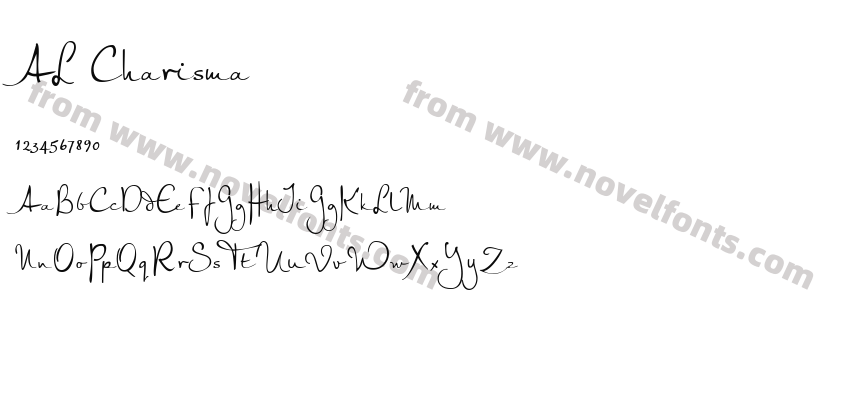 AL Charisma
1234567890
AaBbCcDdEeFfGgHhIiGgKkLlMm
NnOoPpQqRrSsTtUuVvWwXxYyZz
from www.novelfonts.com
from www.novelfonts.com